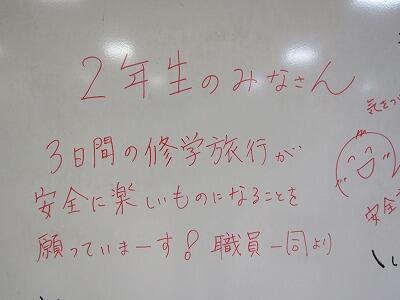 2年生のみなさん
3日間の修学旅行が
安全に楽しいものになることを
願っていまーす! 職員一同より
気をつ
安全